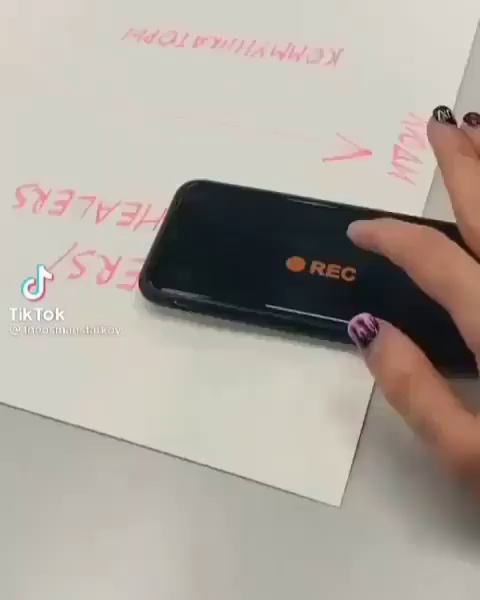 КОММУНИКАТОРЫ
ЛЮДИ
HEALERS
ERS/
REC
TikTok